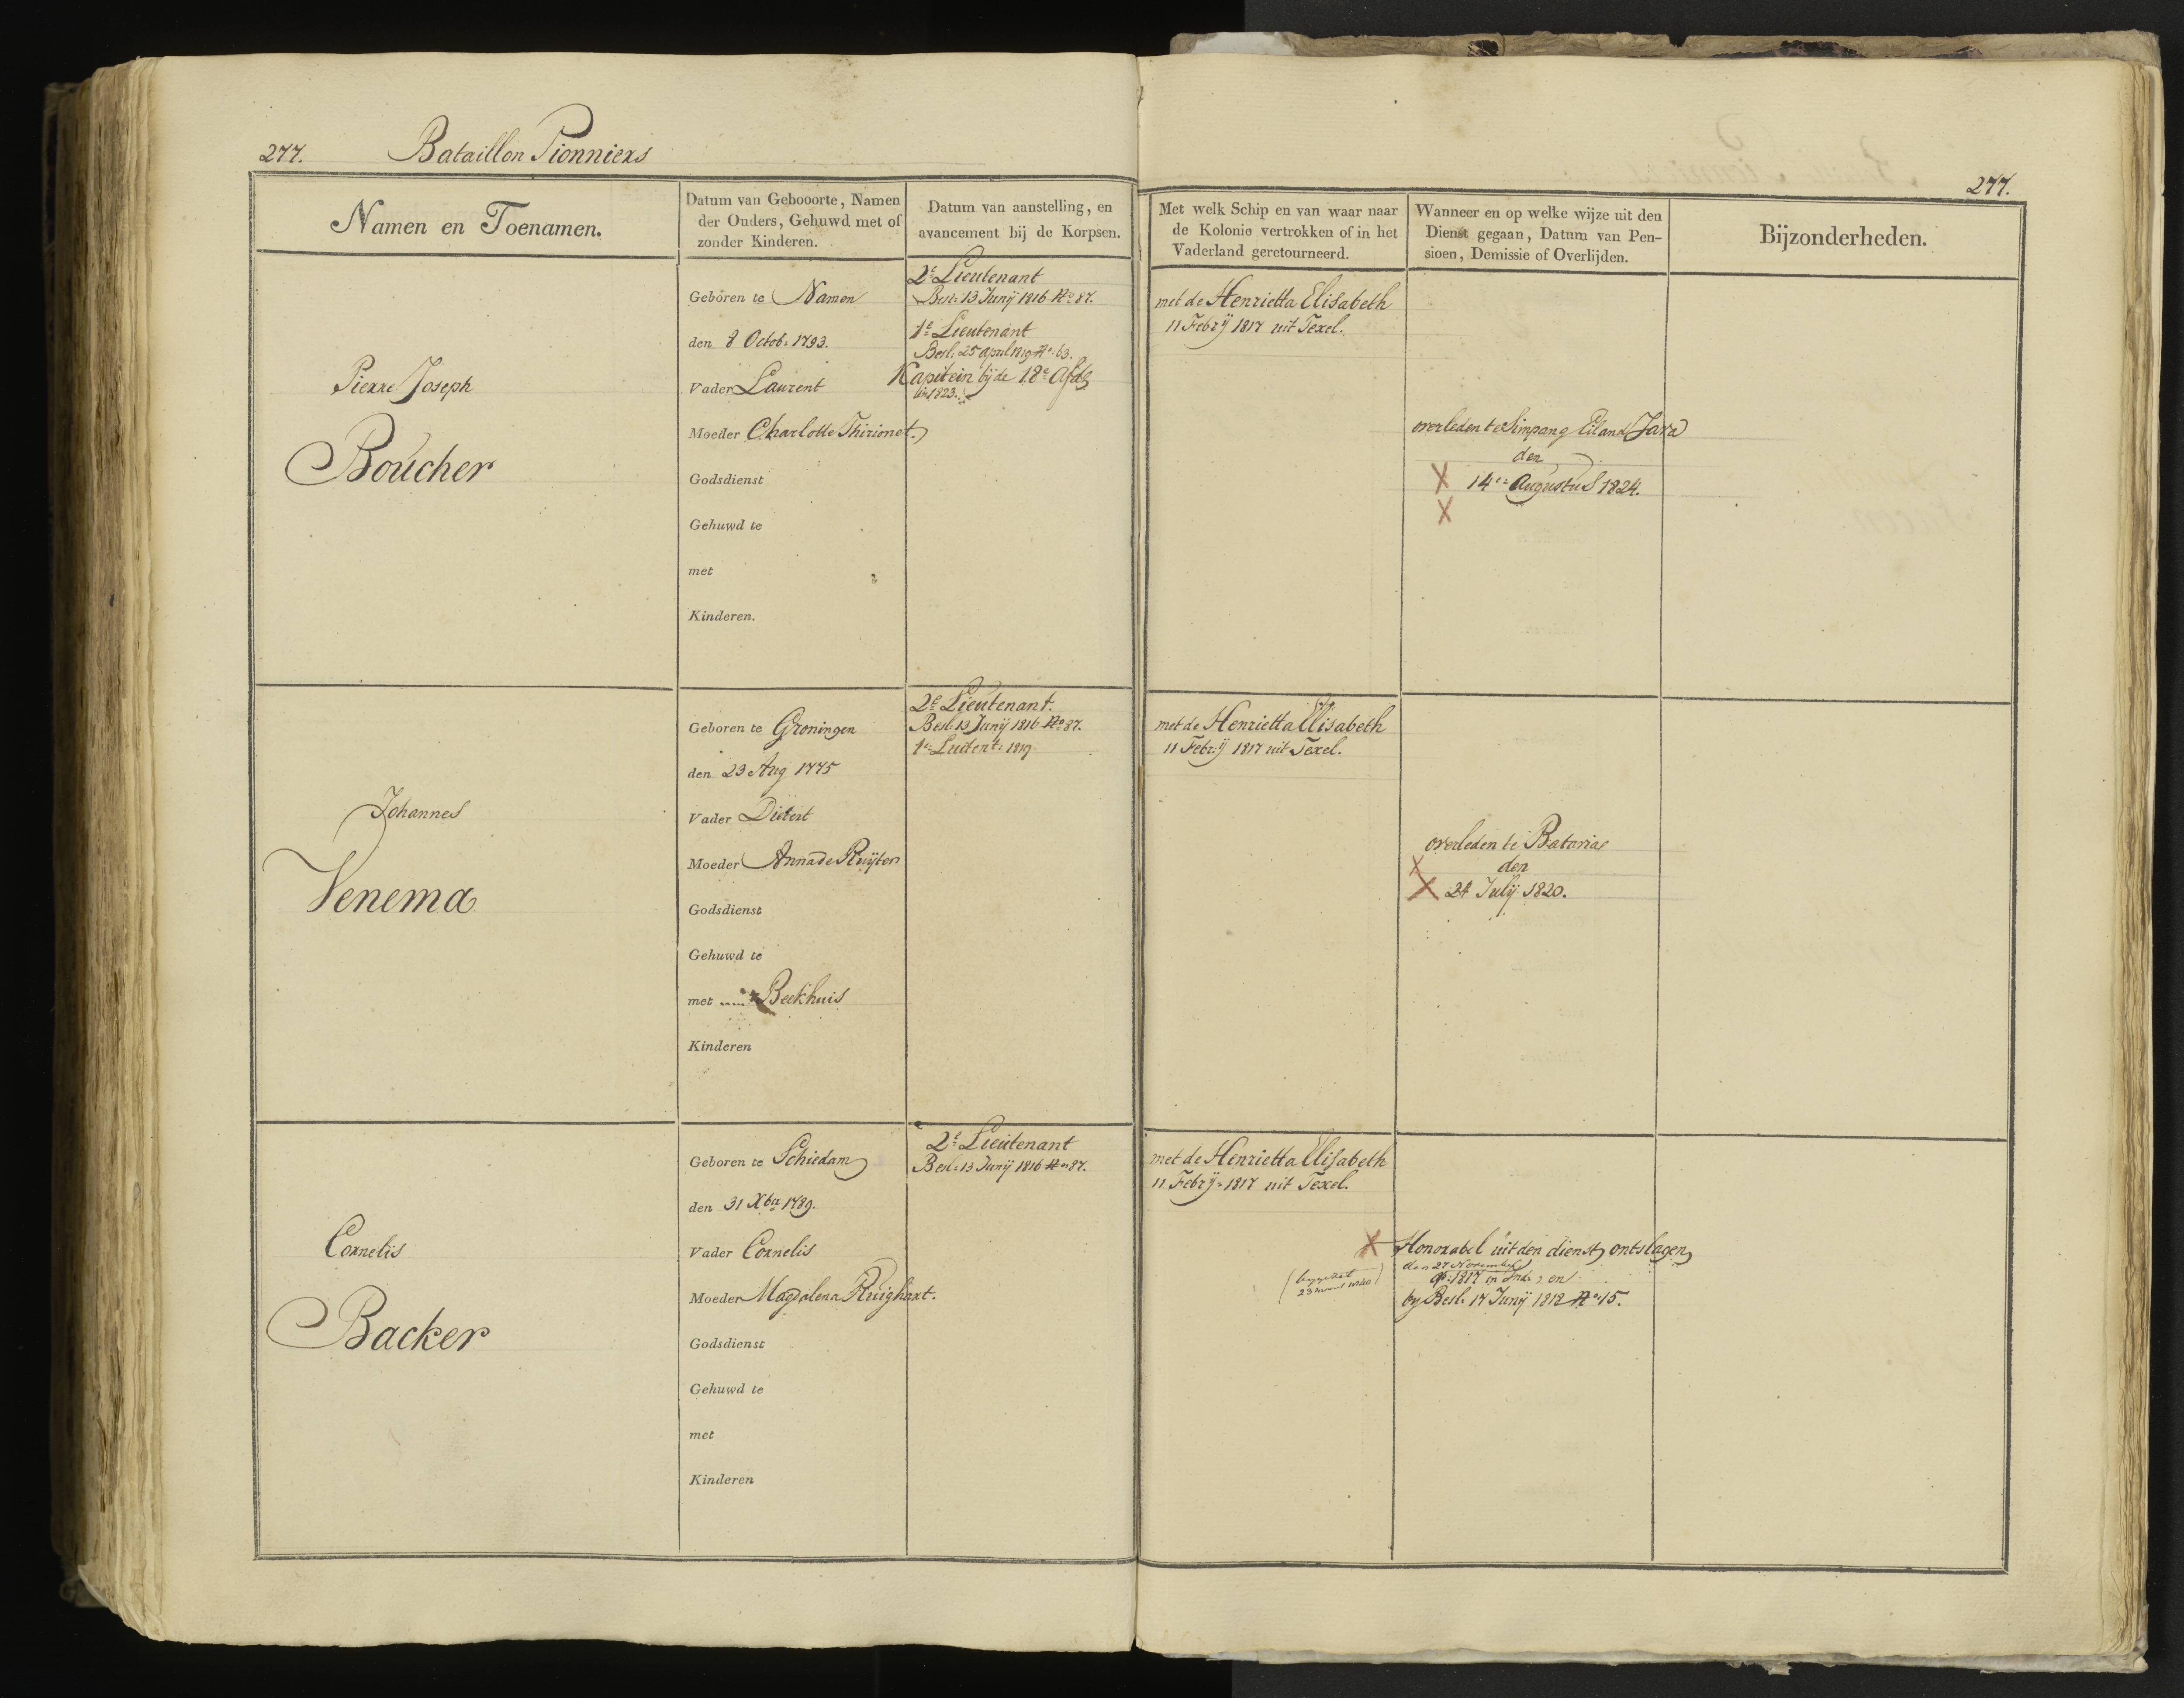 277. Bataillon Pionniers
277.
Namen en Toenamen.
Datum van Gebooorte, Namen
der Ouders, Gehuwd met of
zonder Kinderen.
Datum van aanstelling, en
avancement bij de Korpsen.
Met welk Schip en van waar naar
de Kolonie vertrokken of in het
Vaderland geretourneerd.
Wanneer en op welke wijze uit den
Dienst gegaan, Datum van Pen-
sioen, Demissie of Overlijden.
Bijzonderheden.
Pierre Joseph
Boucher
Geboren te Namen
den 8 Octob. 1793.
Vader Laurent
Moeder Charlotte Thirionet.
Godsdienst
Gehuwd te
met
Kinderen.
2e Lieutenant
Besl: 13 Junij 1816 No 87.
1e Lieutenant
Besl: 25 april 1819 No. 63.
Kapitein bij de 18e Afdg
in 1823.
met de Henrietta Elisabeth
11 Febrij 1817 uit Texel.
overleden te Simpang Eiland Java
den
X 14en Augustus 1824.
X
Johannes
Venema
Geboren te Groningen
den 23 Aug 1775
Vader Dietert
Moeder Anna de Ruijter
Godsdienst
Gehuwd te
met ..... Beekhuis
Kinderen
2e Lieutenant.
Besl: 13 Junij 1816 No 87.
1e Luitent: 1819
met de Henrietta Elisabeth
11 Febrij 1817 uit Texel.
overleden te Batavia
X den
X 24 Julij 1820.
Cornelis
Backer
Geboren te Schiedam
den 31 Xber 1789.
Vader Cornelis
Moeder Magdalena Ruighart.
Godsdienst
Gehuwd te
met
Kinderen
2e Lieutenant
Besl: 13 Junij 1816 No 87.
met de Henrietta Elisabeth
11 Febrij: 1817 uit Texel.
X Honorabel uit den dienst ontslagen
den 27 November
1817 in Ind: en
by Besl. 17 Junij 1818 No. 15.